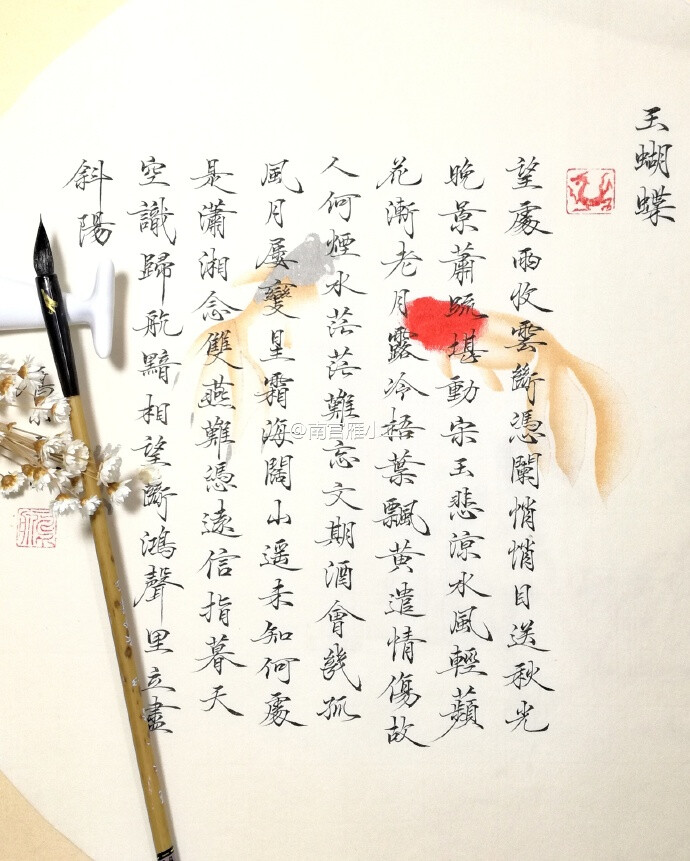 玉蝴蝶
望處雨收雲斷憑闌悄悄目送秋光
晚景蕭疏堪動宋玉悲涼水風輕蘋
花漸老月露冷梧葉飄黃遣情傷故
人何煙水茫茫難忘文期酒會幾孤
風月屢變星霜海闊山遥未知何處
是瀟湘念雙燕難憑遠信指暮天
空識歸航黯相望斷鴻聲里立盡
斜陽
@南宫雁小